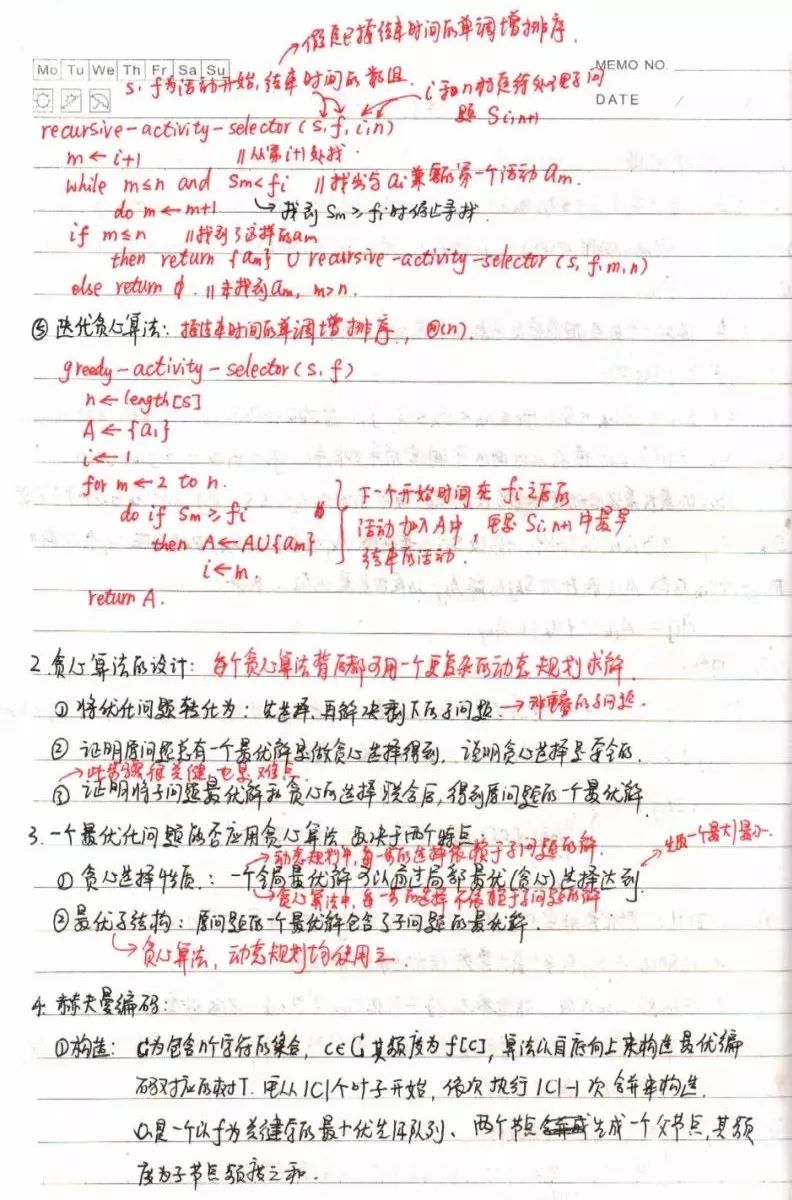 假定已按结束时间的单调增排序.
Mo Tu We Th Fr Sa Su
MEMO NO.
s, f为活动开始, 结束时间的数组.
i和n指定待处理子问
题 Si,n+1
DATE /
recursive-activity-selector(s, f, i, n)
m ← i+1 // 从第i+1处找.
while m≤n and Sm<fi // 找出与ai兼容的第一个活动am.
do m ← m+1 → 找到 Sm ≥ fi时停止寻找.
if m≤n // 找到了这样的am
then return {am} ∪ recursive-activity-selector(s, f, m, n)
else return φ. // 未找到am, m>n.
⑤ 迭代贪心算法: 按结束时间的单调增排序, Θ(n).
greedy-activity-selector(s, f)
n ← length[s]
A ← {a1}
i ← 1
for m ← 2 to n.
do if Sm ≥ fi
then A ← A∪{am}
i ← m
return A.
下一个开始时间在fi之后的
活动加入A中, 也是Si,n+1中最早
结束的活动.
2. 贪心算法的设计: 每个贪心算法背后都可用一个更复杂的动态规划求解.
① 将优化问题转化为: 先选择, 再解决剩下的子问题. → 非重叠的子问题.
② 证明原问题总有一个最优解是做贪心选择得到, 说明贪心选择是安全的.
→ 此步骤很关键, 也是难点
③ 证明将子问题最优解和贪心的选择联合后, 得到原问题的一个最优解.
3. 一个最优化问题能否应用贪心算法, 取决于两个特点:
→ 动态规划中, 每一步的选择依赖于子问题的解.
一个最大|最小.
① 贪心选择性质.: 一个全局最优解可以通过局部最优(贪心)选择达到.
→ 贪心算法中, 每一步的选择不依赖于子问题的解
② 最优子结构: 原问题的一个最优解包含了子问题的最优解.
→ 贪心算法, 动态规划均使用之.
4. 赫夫曼编码:
① 构造: C为包含n个字符的集合, c∈C, 其频度为f[c], 算法以自底向上来构造最优编
码对应的树T. 也从|C|个叶子开始, 依次执行|C|-1次合并来构造.
Q是一个以f为关键字的最小优先队列、两个节点合并成生成一个父节点, 其频
度为子节点频度之和.